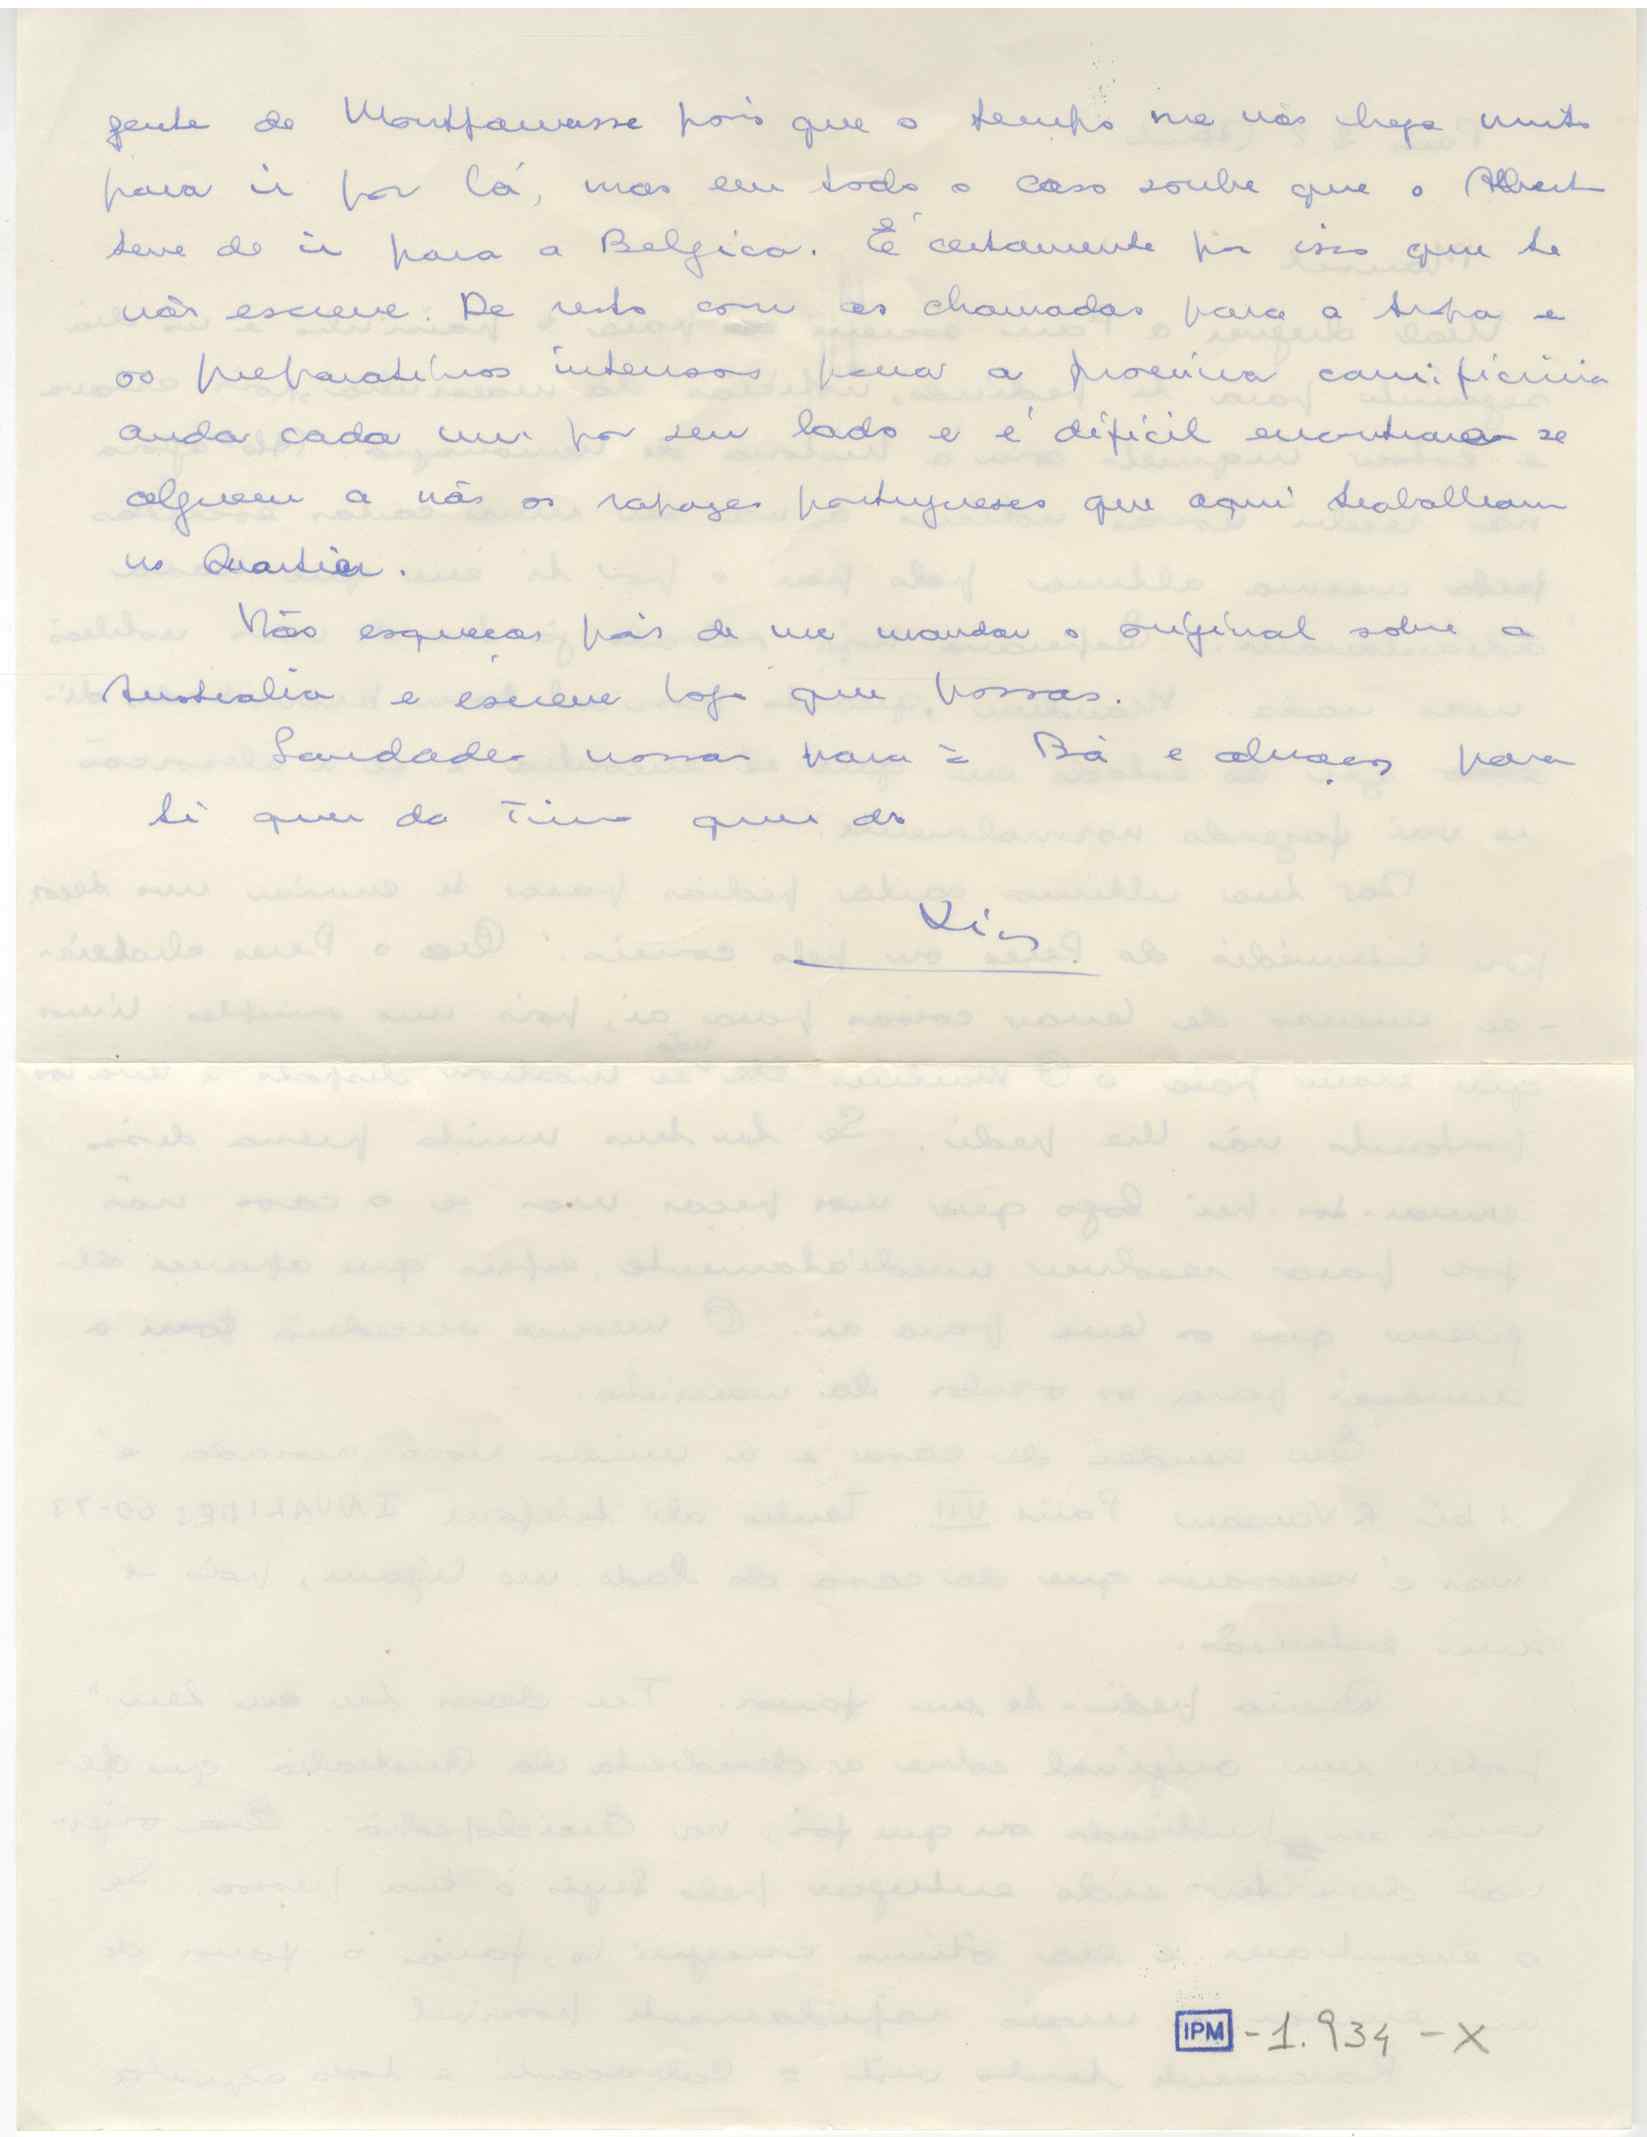 gente de Montparnasse pois que o tempo me não chega muito
para ir por lá, mas em todo o caso soube que o Albert
teve de ir para a Belgica. É certamente por isso que te
não escreve. De resto com as chamadas para a tropa e
os preparativos intensos para a proxima carnificina
anda cada um por seu lado e é dificil encontrar se
alguem a não os rapazes portugueses que aqui trabalham
no Quartier.
Não esqueças pois de me mandar o original sobre a
Australia e escreve logo que possas.
Saudades nossas para a Bá e abraços para
ti quer da Tina quer do
IPM - 1.934 - X